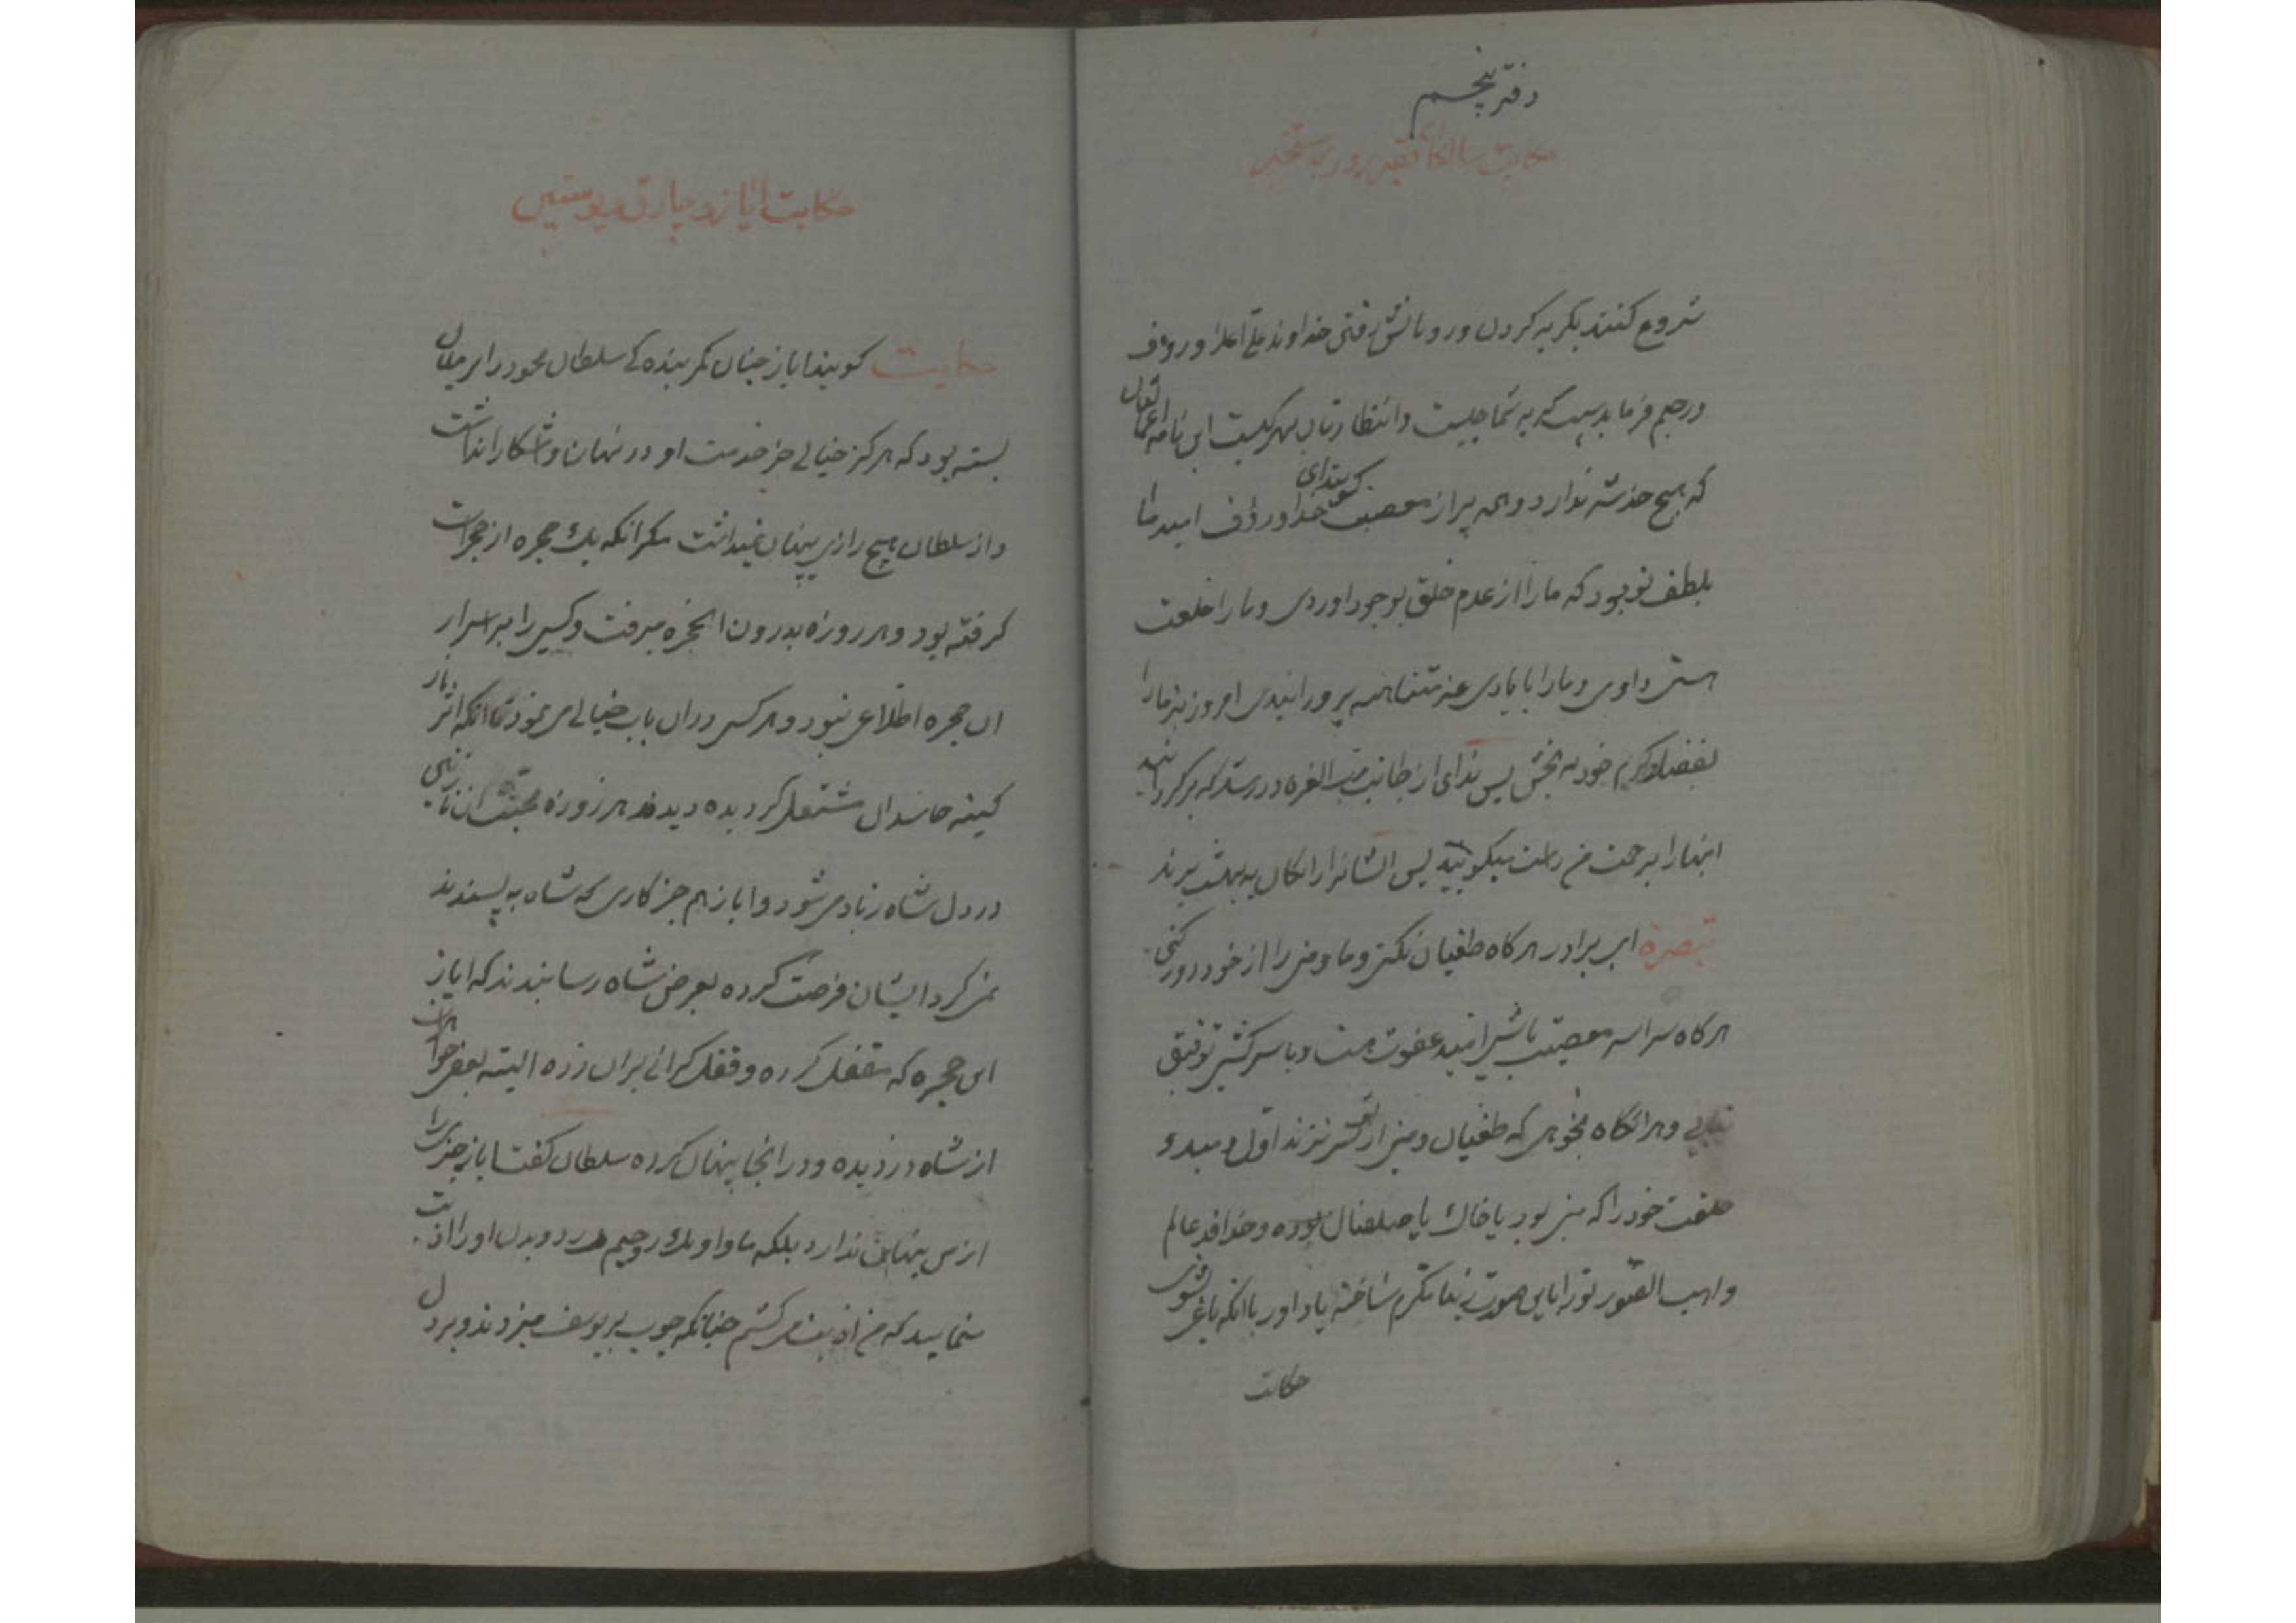 دفتر پنجم
حکایت سالکان فقیر و روز رستخیز
شروع کنند بگریه کردن و روبانش رفتن خداوند اعلا و رؤف
و رحیم فرماید سبب گریه شما چیست و انتظارتان بهر کیست این نامه اعمالتان
که هیچ خدشه ندارد و همه پر از معصیت گویند ای خداوند رؤف امید ما
بلطف تو بود که ما را از عدم خلق بوجود اوردی و ما را خلعت
هستی دادی و ما را بایادی غیر متناهیه پرورانیدی امروز نیز ما را
بفضل و کرم خود به بخش پس ندای از جانب رب العزه در رسد که برگردانید
اینها را برحمت من راست میگویند پس ایشانرا ملکان به بهشت برند
تبصره ای برادر هرگاه طغیان نکنی و ما و منی را از خود دور کنی
هرگاه سراسر معصیت باشی امید عفوت هست و با سرکشی توفیق
نیابی و هرانگاه بخوهی که طغیان و منی از تو سر نزند اول و مبدء
خلقت خود را که منی بود یا خاک یا صلصال بوده و خداوند عالم
واهب الصور تو را باین صورت زیبا مکرم ساخته یاد اور با انکه یاغی نشوی
حکایت
حکایت ایاز و چارق و پوستین
حکایت گویند ایاز چنان کمر بندگی سلطان محمود را بر میان
بسته بود که هرگز خیالی جز خدمت او در نهان و آشکارا نداشت
و از سلطان هیچ رازی پنهان نمیداشت مگر انکه یک حجره از حجرات
گرفته بود و هر روزه بدرون انحجره میرفت و کسی را بر اسرار
ان حجره اطلاعی نبود و هر کسی در ان باب خیالی می نمود تا انکه اثر نار
کینه حاسدان مشتعل گردیده دیدند هر روزه محبت ان نازنین
در دل شاه زیاد می شود و ایاز هم جز کاری که شاه به پسندد
نمی کرد ایشان فرصت کرده بعرض شاه رسانیدند که ایاز
این حجره که مقفل کرده و قفل گرانی بران زده البته بعض جواهرات
از شاه دزدیده و در انجا پنهان کرده سلطان گفت ایاز چیزی را
از من پنهان ندارد بلکه ما و او یک روحیم در دو بدن او را اذیت
منمایید که من اذیت می کشم چنانکه چوب بر یوسف میزدند و بر دل